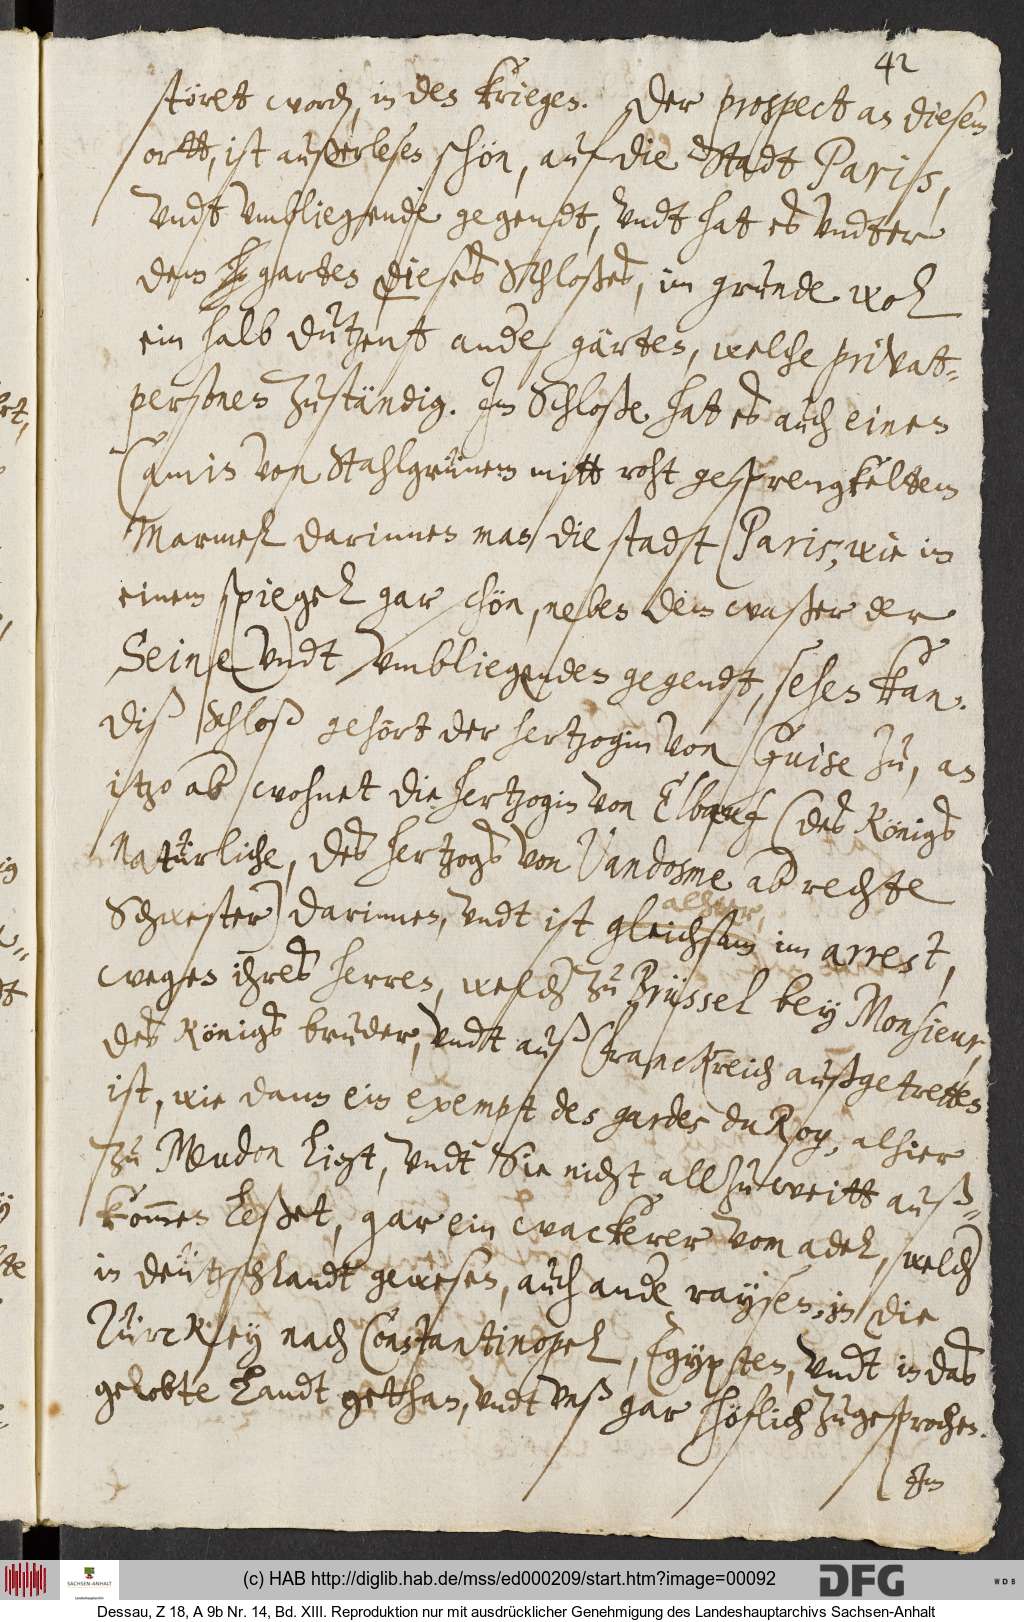 42
störet worden, in den kriegen. Der prospect an diesem
ortt, ist außerlesen schön, auf die Stadt Pariß,
Vndt Vmbliegende gegendt, Vndt hat es Vndter
dem garten dieses Schloßes, im grunde wol
ein halb dutzent andere gärten, welche privat-
personen zuständig. Im Schloße hat es auch einen
Camin von Stahlgrünem mitt roht gesprengkeltem
Marmel darinnen man die stadt Paris, wie in
einem spiegel gar schön, neben dem waßer der
Seine Vndt Vmbliegenden gegendt, sehen kan.
Diß Schloß gehört der hertzogin von Guise zu, an
itzo aber wohnet die hertzogin von Elbœuf (des Königs
Natürliche, des hertzogs von Vandosme aber rechte
Schwester) darinnen, Vndt ist gleichsam alhier, im arrest,
wegen ihres herren, welcher zu Brüssel bey Monsieur,
des Königs bruder, Vndt auß Franckreich außgetretten
ist, wie dann ein exempt des gardes du Roy, alhier
zu Meudon liegt, Vndt Sie nicht allzuweitt auß-
kom̄en leßet, gar ein wackerer vom adel, welcher
in deützschlandt gewesen, auch andere raysen, in die
Türckey nach Constantinopel, Egypten, Vndt in das
gelobte Landt getthan, Vndt Vnß gar höflich zugesprochen.
Im
(c) HAB http://diglib.hab.de/mss/ed000209/start.htm?image=00092
SACHSEN-ANHALT
DFG
WDB
Dessau, Z 18, A 9b Nr. 14, Bd. XIII. Reproduktion nur mit ausdrücklicher Genehmigung des Landeshauptarchivs Sachsen-Anhalt